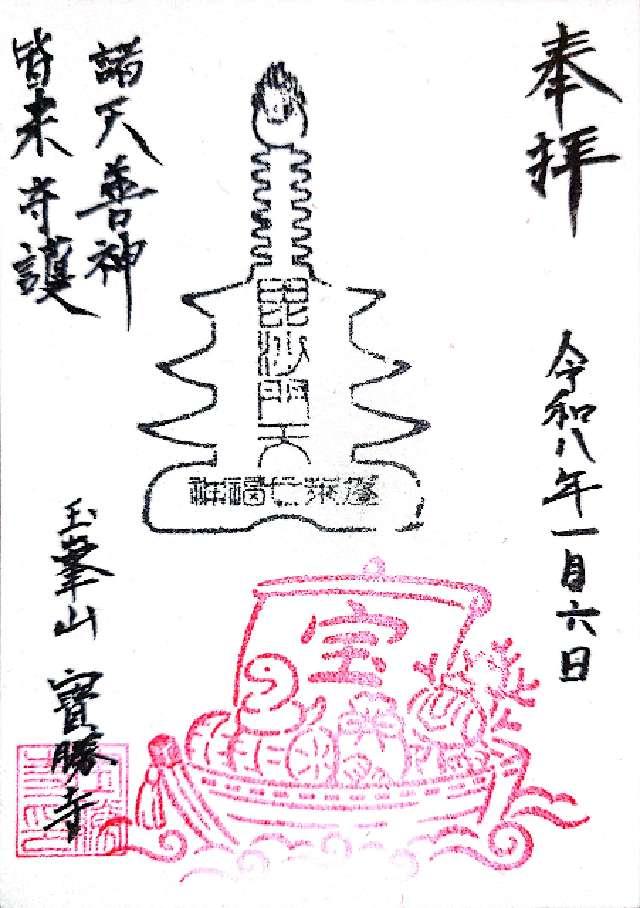 奉拝
令和八年一月六日
毘沙門天
蓬莱七福神
諸天善神
皆来守護
宝
玉峯山 寳勝寺